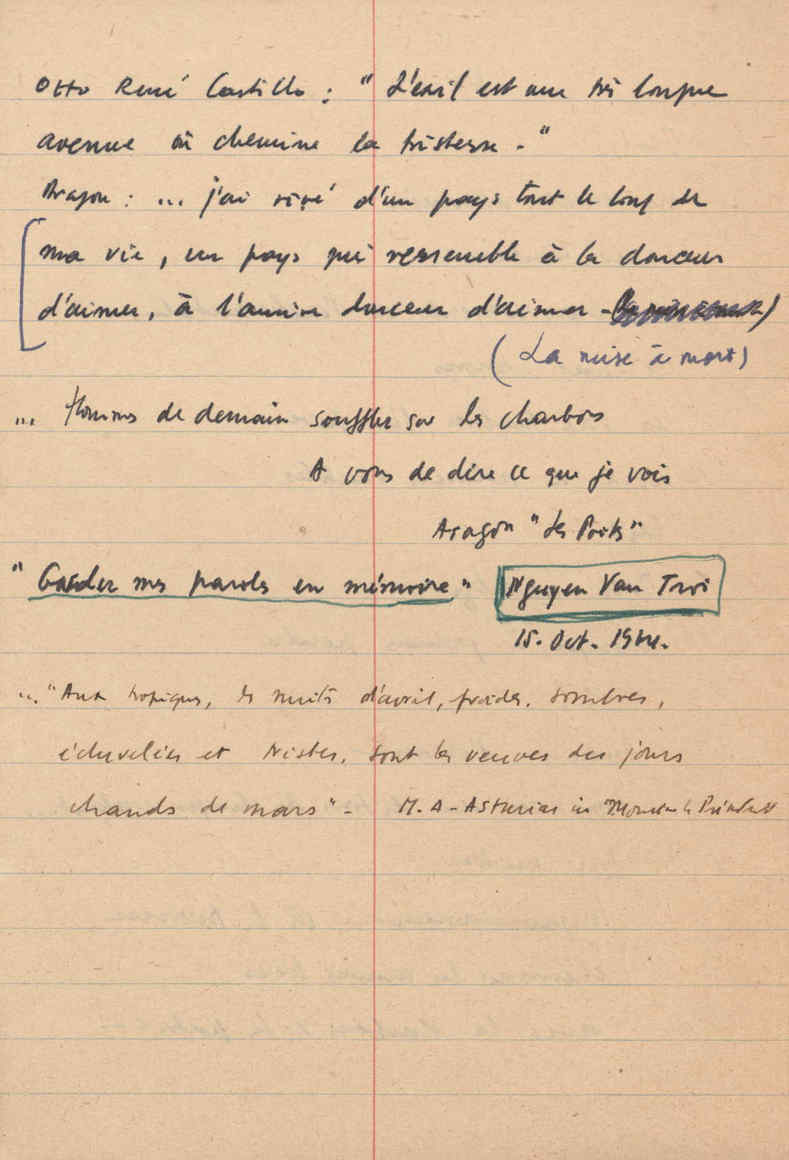 Otto René Castillo : " L'exil est une très longue
avenue où chemine la tristesse - "
Aragon : ... j'ai rêvé d'un pays tout le long de
ma vie, un pays qui ressemble à la douceur
d'aimer, à l'amère douceur d'aimer -
(La mise à mort)
... Hommes de demain soufflez sur les charbons
A vous de dire ce que je vois
Aragon "Les Poètes"
" Garder mes paroles en mémoire " Nguyen Van Troi
15. Oct. 1964.
... "Aux tropiques, les nuits d'avril, froides, sombres,
échevelées et tristes, sont les veuves des jours
chauds de mars" - M. A - Asturias in Monsieur le Président